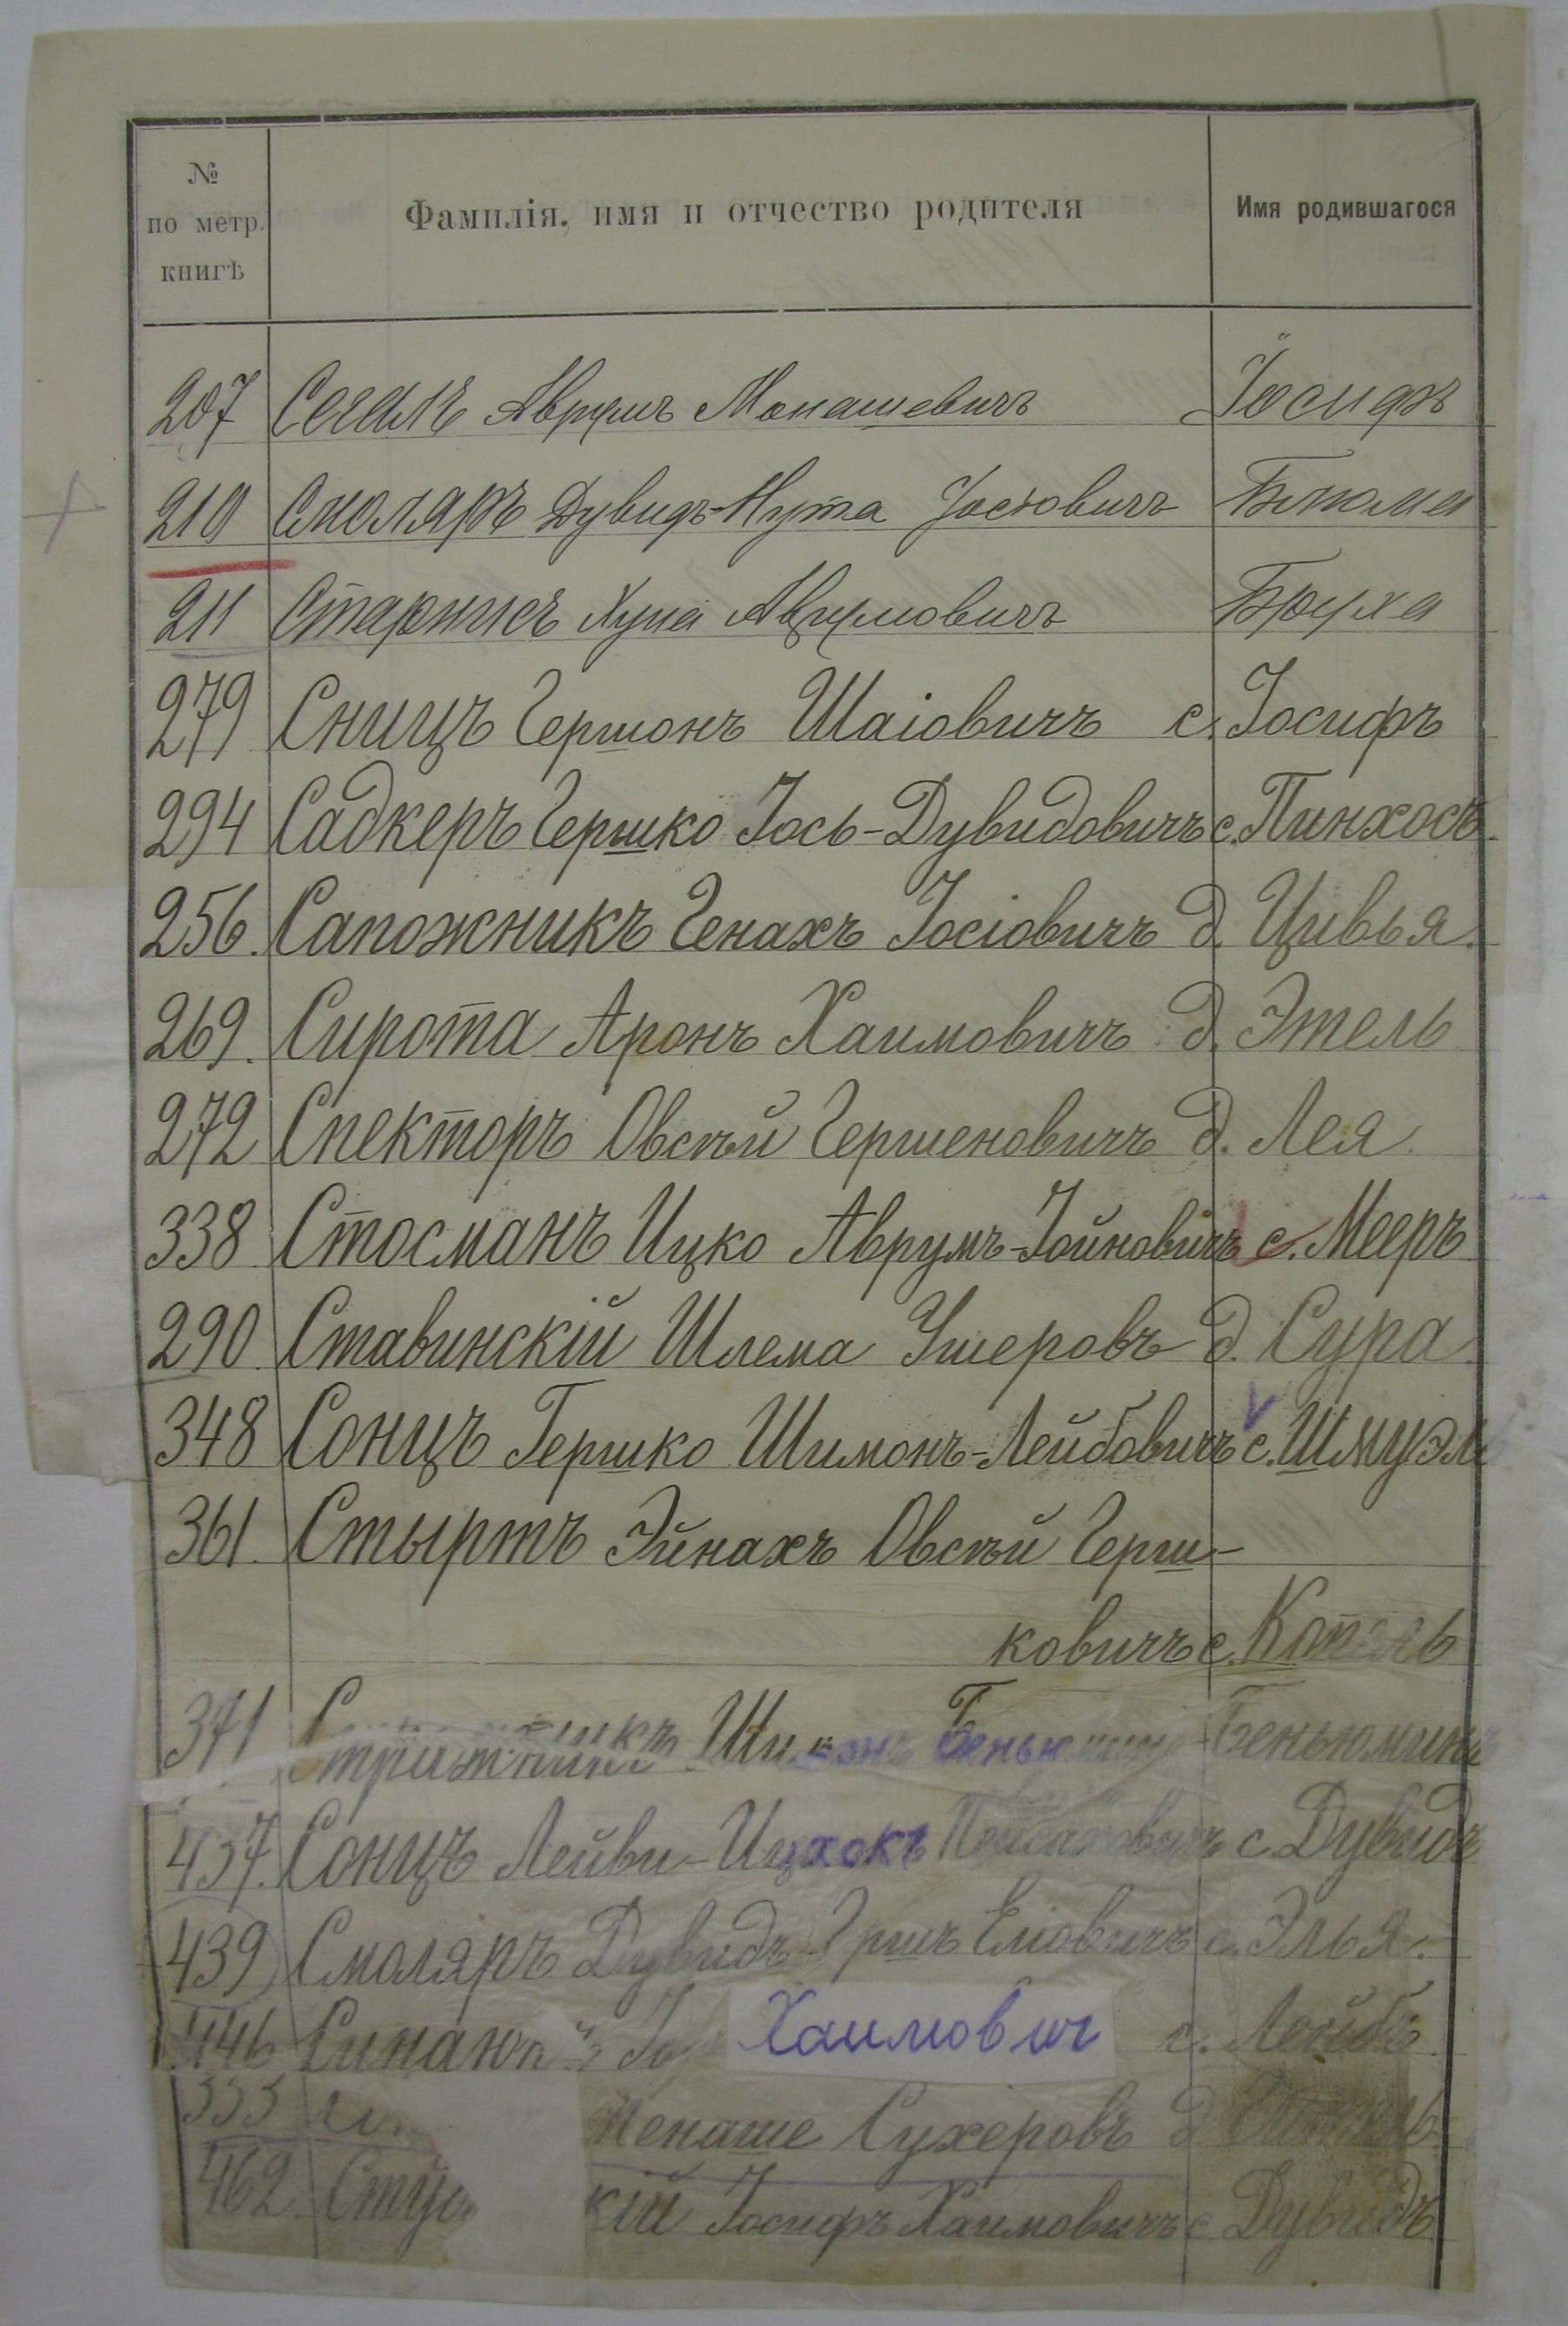 №
по метр.
книгѣ
Фамилія, имя и отчество родителя
Имя родившагося
207 Сегалъ Аврумъ Монашевичъ Іосифъ
210 Смоляръ Дувидъ-Нута Іосіовичъ Блюма
211 Старнисъ Хуна Аврумовичъ Бруха
279 Сницъ Гершонъ Шаіовичъ с. Іосифъ
294 Садкеръ Гершко Іось-Дувидовичъ с. Пинхосъ.
256. Сапожникъ Генахъ Іосіовичъ д. Цивья.
269. Сирота Аронъ Хаимовичъ д. Этель
272 Спекторъ Овсѣй Гершеновичъ д. Лея.
338 Стосманъ Ицко Аврумъ-Іойновичъ с. Мееръ
290. Ставинскій Шлема Ушеровъ д. Сура.
348 Сонцъ Гершко Шимонъ-Лейбовичъ с. Шмуэль
361. Стыртъ Эйнахъ Овсѣй Герш-
ковичъ с. Копель
371 Беньюминъ
437. Сонцъ Лейви-Ицхокъ Пейсаховичъ с. Дувидъ
439 Смоляръ Дувидъ- Еліовичъ с. Элья.
446 Хаимович с. Лейбъ
353 Менаше Сухеровъ д
462. кій Іосифъ Хаимовичъ с Дувидъ